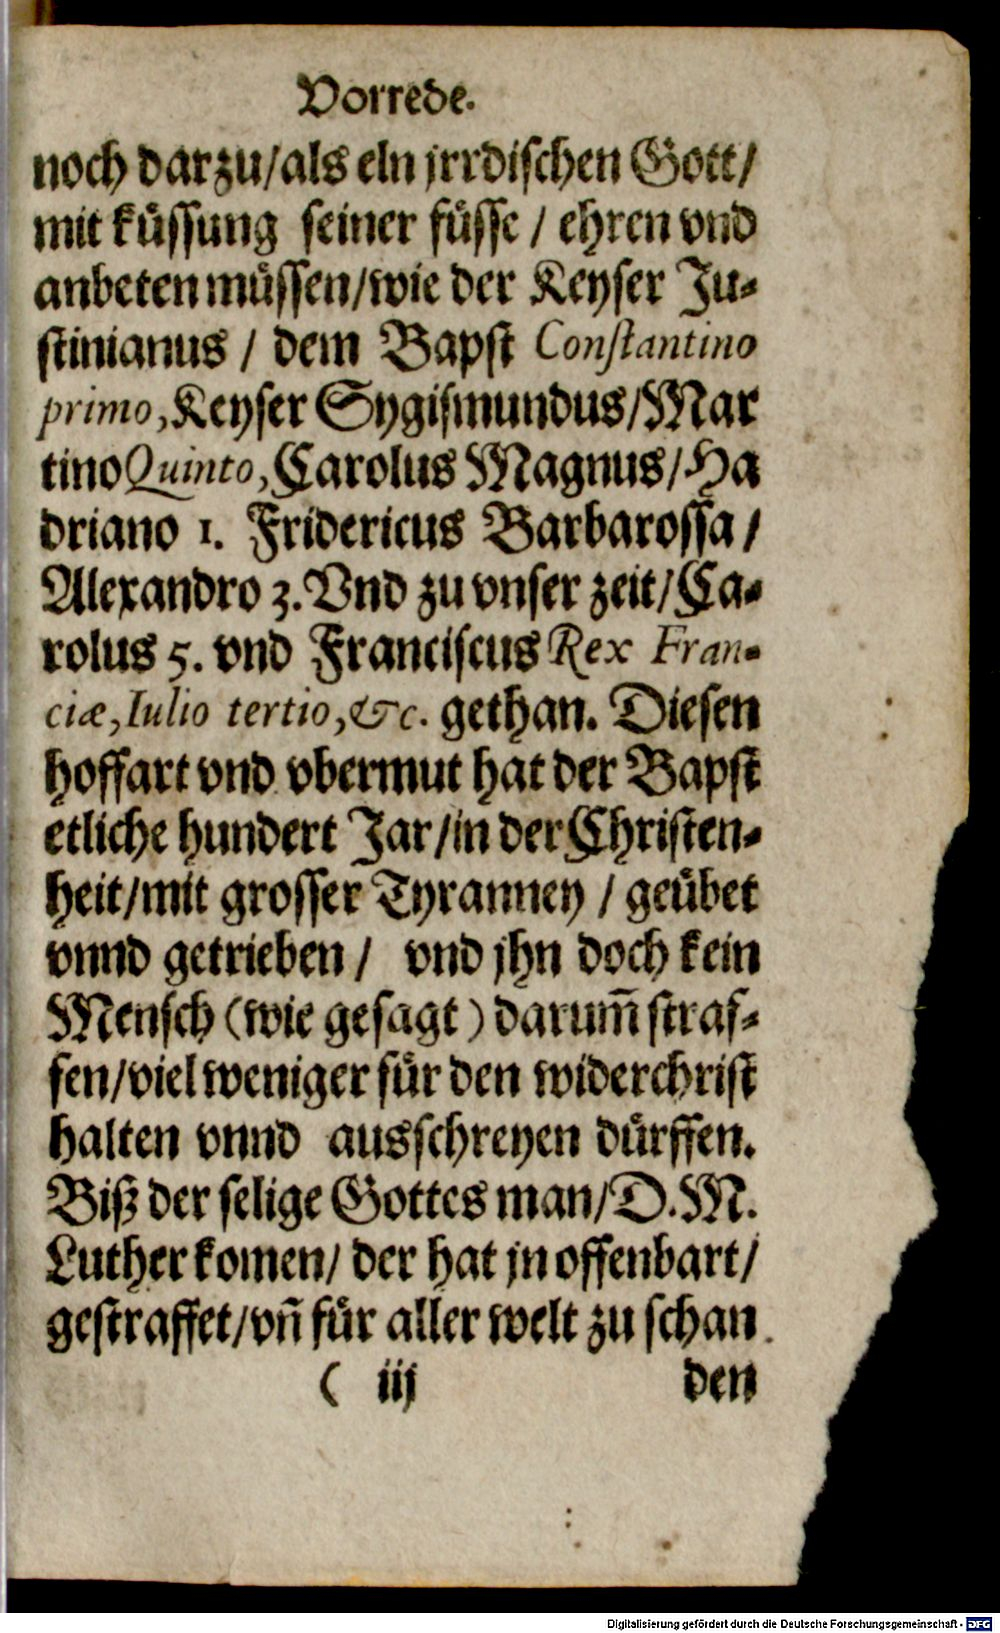 Vorrede.
noch darzu/als eln jrrdischen Gott/
mit küssung seiner füsse / ehren vnd
anbeten müssen/wie der Keyser Ju⸗
stinianus / dem Bapst Constantino
primo, Keyser Sygismundus/Mar
tino Quinto, Carolus Magnus/Ha
driano 1. Fridericus Barbarossa /
Alexandro 3. Vnd zu vnser zeit/Ca⸗
rolus 5. vnd Franciscus Rex Fran⸗
ciæ, Iulio tertio, &c. gethan. Diesen
hoffart vnd vbermut hat der Bapst
etliche hundert Jar/in der Christen⸗
heit/mit grosser Tyranney / geübet
vnnd getrieben / vnd jhn doch kein
Mensch (wie gesagt) darum̃ straf⸗
fen/viel weniger für den widerchrist
halten vnnd ausschreyen dürffen.
Biß der selige Gottes man/D.M.
Luther komen/ der hat jn offenbart/
gestraffet/vñ für aller welt zu schan
( iij den
Digitalisierung gefördert durch die Deutsche Forschungsgemeinschaft - DFG